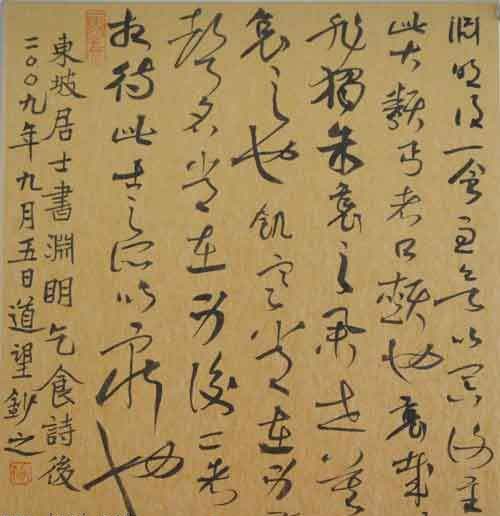 淵明得一食至欲以冥謝主
此大類丐者口頰也哀哉
非獨余哀之舉世莫
哀之也飢寒常在身
聲名常在身後二者
相待此士之所以窮也
東坡居士書淵明乞食詩後
二〇〇九年九月五日道望鈔之